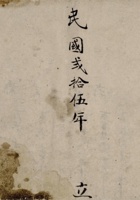 民國弍拾伍年 立